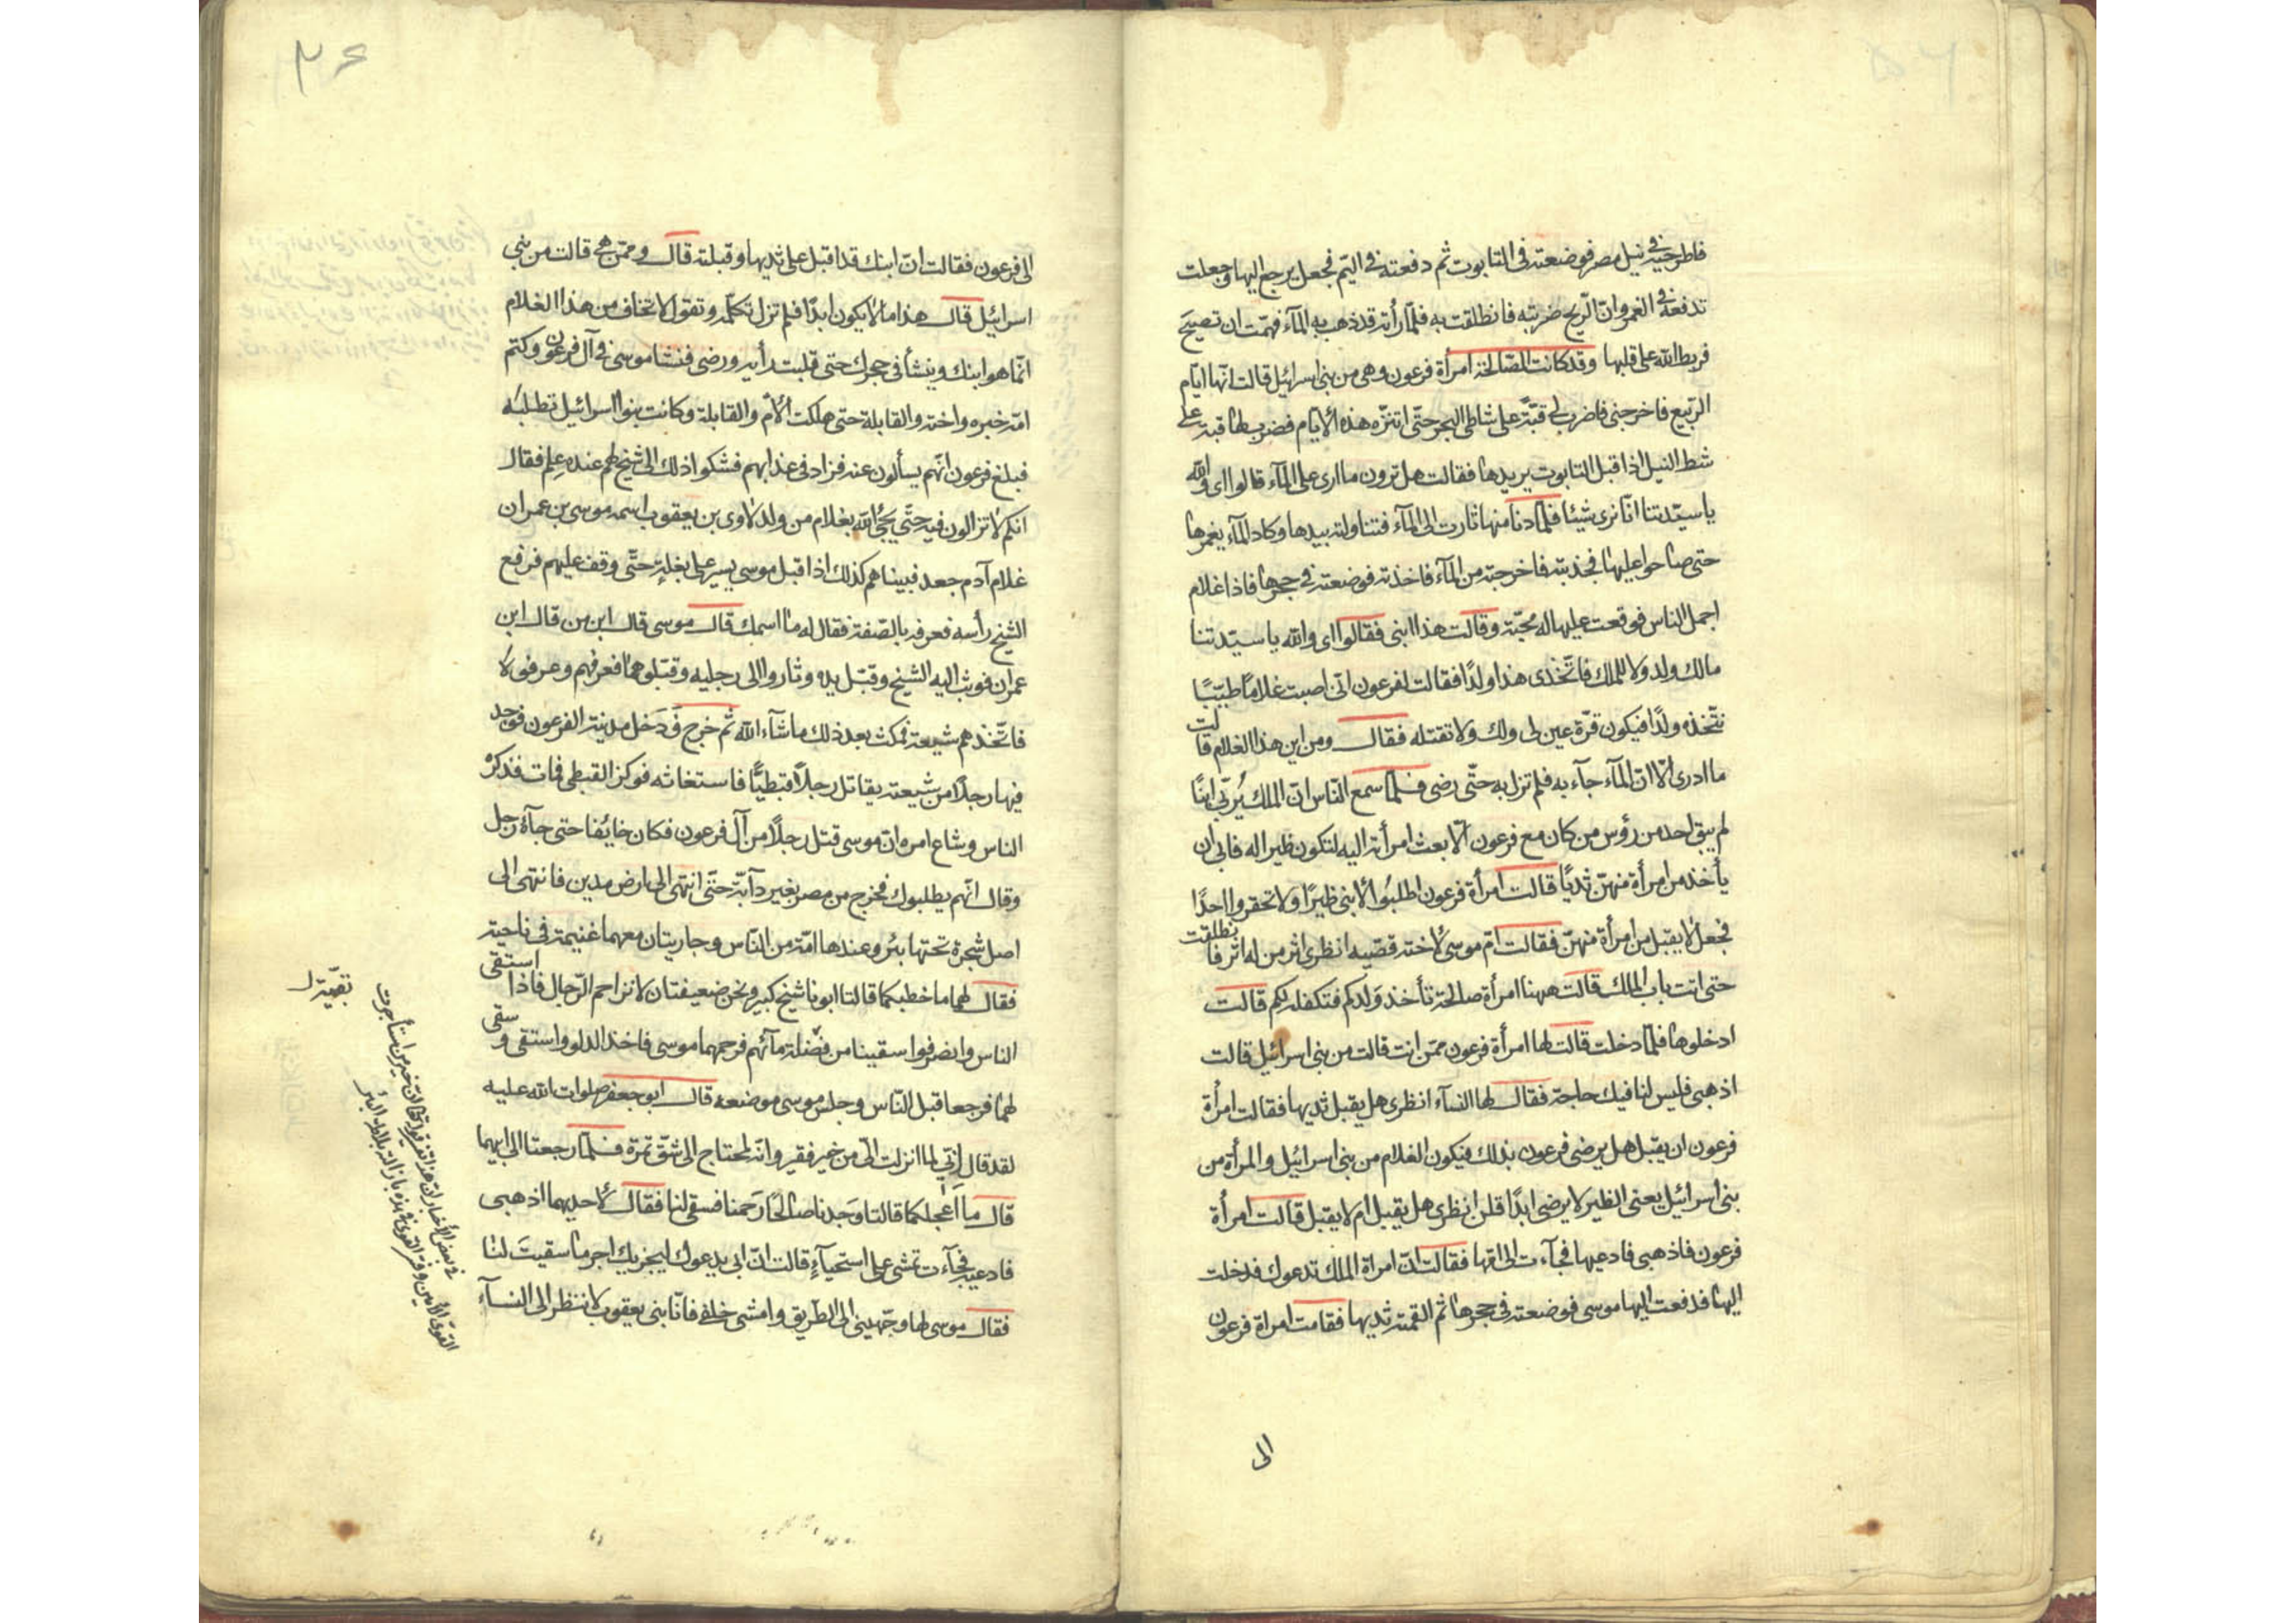 فاطرحيه في نيل مصر فوضعته في التابوت ثم دفعته في اليم فجعل يرجع اليها وجعلت
تدفعه في الغمر وان الريح ضربته فانطلقت به فلما رأته قد ذهب به المآء فهمت ان تصيح
فربط الله على قلبها وقد كانت الصالحة امرأة فرعون وهي من بني اسرائيل قالت انها ايام
الربيع فاخرجني فاضرب لي قبة على شاطئ البحر حتى اتنزه هذه الايام فضرب لها قبة على
شط النيل اذا قبل التابوت يريدها فقالت هل ترون ما ارى على المآء قالوا اي والله
يا سيدتنا انا نرى شيئا فلما دنا منها ثارت الى المآء فتناولته بيدها وكاد المآء يغمرها
حتى صاحوا عليها فجذبته فاخرجته من المآء فاخذته فوضعته في حجرها فاذا غلام
اجمل الناس فوقعت عليها له محبة وقالت هذا ابني فقالوا اي والله يا سيدتنا
مالك ولد ولا للملك فاتخذي هذا ولدًا فقالت لفرعون اني اصبت غلامًا طيبًا
نتخذه ولدًا فيكون قرة عين لي ولك ولا تقتله فقال ومن اين هذا الغلام قالت
ما ادري الا ان المآء جآء به فلم تزل به حتى رضي فلما سمع الناس ان الملك يُربي ابنًا
لم يبق احد من رؤس من كان مع فرعون الا بعث امرأته اليه لتكون ظيرا له فابى ان
يأخذ من امرأة منهن ثديًا قالت امرأة فرعون اطلبوا لابني ظيرًا ولا تحقروا احدًا
فجعل لا يقبل من امرأة منهن فقالت ام موسى لاخته قصيه انظري اثر من له اثر فانطلقت
حتى اتت باب الملك قالت ههنا امرأة صالحة تأخذ ولدكم فتكفله لكم قالت
ادخلوها فلما دخلت قالت لها امرأة فرعون ممن انت قالت من بني اسرائيل قالت
اذهبي فليس لنا فيك حاجة فقال لها النسآء انظري هل يقبل ثديها فقالت امرأة
فرعون ان يقبل هل يرضى فرعون بذلك فيكون الغلام من بني اسرائيل والمرأة من
بني اسرائيل يعني الظير لا يرضى ابدًا قلن انظري هل يقبل ام لا يقبل قالت امرأة
فرعون فاذهبي فادعيها فجآءت الى امها فقالت ان امراة الملك تدعوك فدخلت
اليها فدفعت اليها موسى فوضعته في حجرها ثم القمته ثديها فقامت امراة فرعون
الى
۳۶
الى فرعون فقالت ان ابنك قد اقبل على ثديها وقبلته قال وممن هي قالت من بني
اسرائيل قال هذا ما لا يكون ابدًا فلم تزل تكلمه وتقول لا تخاف من هذا الغلام
انما هو ابنك وينشأ في حجرك حتى قلبت رأيه ورضي فنشا موسى في آل فرعون وكتم
امه خبره واخته والقابلة حتى هلكت الام والقابلة وكانت بنوا اسرائيل تطلبه
فبلغ فرعون انهم يسألون عنه فزاد في عذابهم فشكوا ذلك الى شيخ لهم عنده علم فقال
انكم لا تزالون فيه حتى يجئ الله بغلام من ولد لاوى بن يعقوب اسمه موسى بن عمران
غلام آدم جعد فبيناهم كذلك اذا قبل موسى يسير على بغلة حتى وقف عليهم فرفع
الشيخ رأسه فعرفه بالصفة فقال له ما اسمك قال موسى قال ابن من قال ابن
عمران فوثب اليه الشيخ وقبل يده وثاروا الى رجليه وقبلوهما فعرفهم وعرفوه
فاتخذهم شيعة فمكث بعد ذلك ما شآء الله ثم خرج فدخل مدينة الفرعون فوجد
فيها رجلًا من شيعته يقاتل رجلًا قبطيًا فاستغاثه فوكز القبطي فمات فذكره
الناس وشاع امره ان موسى قتل رجلًا من آل فرعون فكان خايفا حتى جآءه رجل
وقال انهم يطلبوك فخرج من مصر بغير دآبة حتى انتهى الى ارض مدين فانتهى الى
اصل شجرة تحتها بئر وعندها امة من الناس وجاريتان معهما غنيمة في ناحية
فقال لهما ما خطبكما قالتا ابونا شيخ كبير ونحن ضعيفتان لا نزاحم الرجال فاذا استقى
الناس وانصرفوا سقينا من فضلة مآئهم فرحمهما موسى فاخذ الدلو واستقى وسقى
لهما فرجعا قبل الناس وجلس موسى موضعه قال ابو جعفر صلوات الله عليه
لقد قال اني لما انزلت الي من خير فقير وانه لمحتاج الى شق تمرة فلما رجعتا الى ابيهما
قال ما اعجلكما قالتا وجدنا صالحًا رحمنا فسقى لنا فقال لاحديهما اذهبي
فادعيه فجآءت تمشي على استحيآء قالت ان ابي يدعوك ليجزيك اجر ما سقيت لنا
فقال موسى لها وجهيني الى الطريق وامشي خلفي فانا بني يعقوب لا ننظر الى النسآء
في بعض الاخبار ان خير من استأجرت
القوي الامين